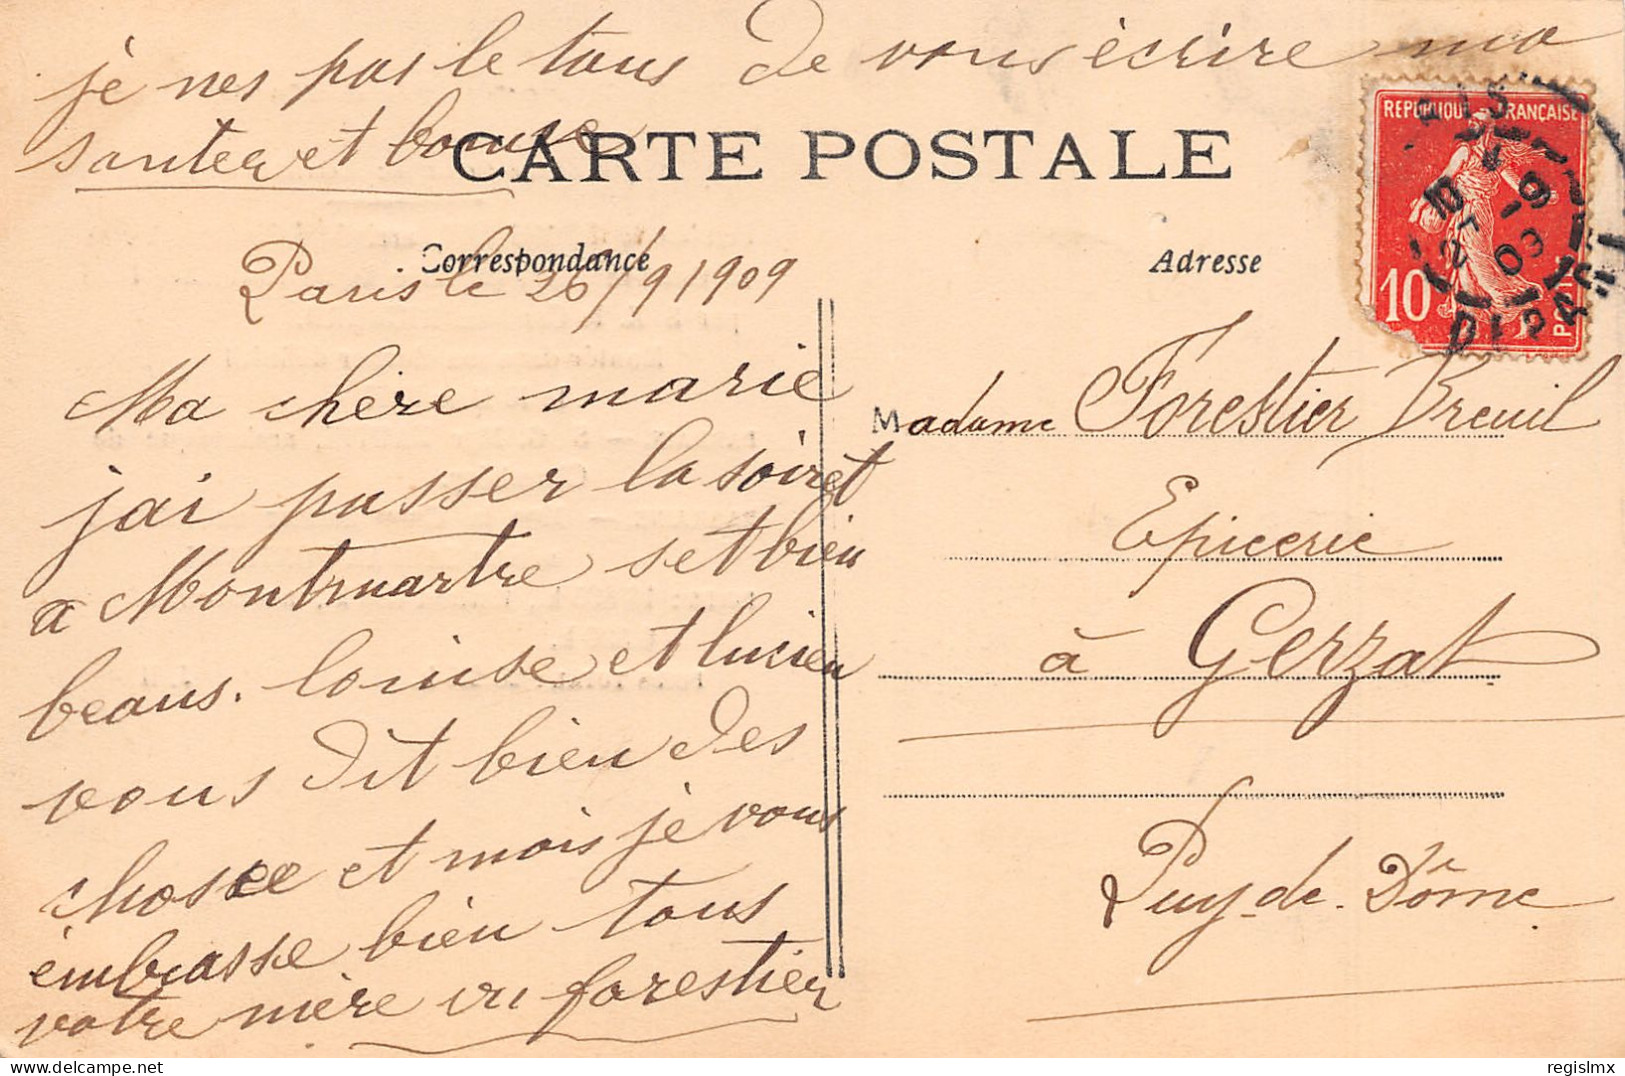 je nes pas le tans de vous écrire ma
santer et bonne
CARTE POSTALE
Correspondance
Adresse
Paris le 26/9/1909
Ma chère marie
jai passer la soiret
a Montmartre set bien
beaus. louise et lucien
vous dit bien des
chosee et mois je vous
embrasse bien tous
votre mère vve forestier
REPUBLIQUE FRANÇAISE
10
POSTES
Madame Forestier Breuil
Epicerie
à Gerzat
Puy-de-Dôme
regislmx